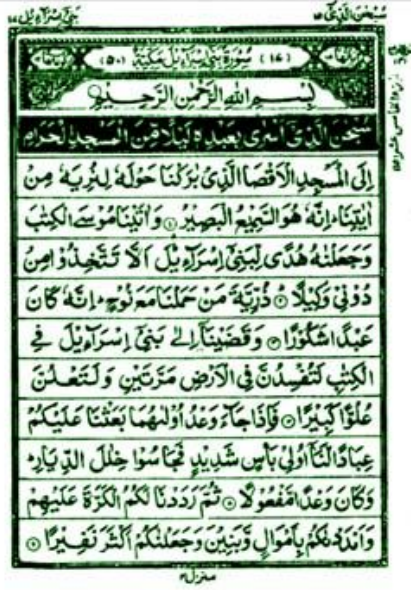 سُبْحٰنَ الَّذِیْۤ ۱۵
بَنِیْۤ اِسْرَآءِیْل ۱۷
(۱۷) سُوْرَةُ بَنِیْۤ اِسْرَآءِیْلَ مَكِّیَّةٌ (۵۰)
بِسْمِ اللّٰهِ الرَّحْمٰنِ الرَّحِیْمِ
سُبْحٰنَ الَّذِیْۤ اَسْرٰی بِعَبْدِهٖ لَیْلًا مِّنَ الْمَسْجِدِ الْحَرَامِ
اِلَی الْمَسْجِدِ الْاَقْصَا الَّذِیْ بٰرَكْنَا حَوْلَهٗ لِنُرِیَهٗ مِنْ
اٰیٰتِنَا ؕ اِنَّهٗ هُوَ السَّمِیْعُ الْبَصِیْرُ ۱ وَ اٰتَیْنَا مُوْسَی الْكِتٰبَ
وَ جَعَلْنٰهُ هُدًی لِّبَنِیْۤ اِسْرَآءِیْلَ اَلَّا تَتَّخِذُوْا مِنْ
دُوْنِیْ وَكِیْلًا ۲ ذُرِّیَّةَ مَنْ حَمَلْنَا مَعَ نُوْحٍ ؕ اِنَّهٗ كَانَ
عَبْدًا شَكُوْرًا ۳ وَ قَضَیْنَاۤ اِلٰی بَنِیْۤ اِسْرَآءِیْلَ فِی
الْكِتٰبِ لَتُفْسِدُنَّ فِی الْاَرْضِ مَرَّتَیْنِ وَ لَتَعْلُنَّ
عُلُوًّا كَبِیْرًا ۴ فَاِذَا جَآءَ وَعْدُ اُوْلٰىهُمَا بَعَثْنَا عَلَیْكُمْ
عِبَادًا لَّنَاۤ اُولِیْ بَاْسٍ شَدِیْدٍ فَجَاسُوْا خِلٰلَ الدِّیَارِ ؕ
وَ كَانَ وَعْدًا مَّفْعُوْلًا ۵ ثُمَّ رَدَدْنَا لَكُمُ الْكَرَّةَ عَلَیْهِمْ
وَ اَمْدَدْنٰكُمْ بِاَمْوَالٍ وَّ بَنِیْنَ وَ جَعَلْنٰكُمْ اَكْثَرَ نَفِیْرًا ۶
منزل ۴